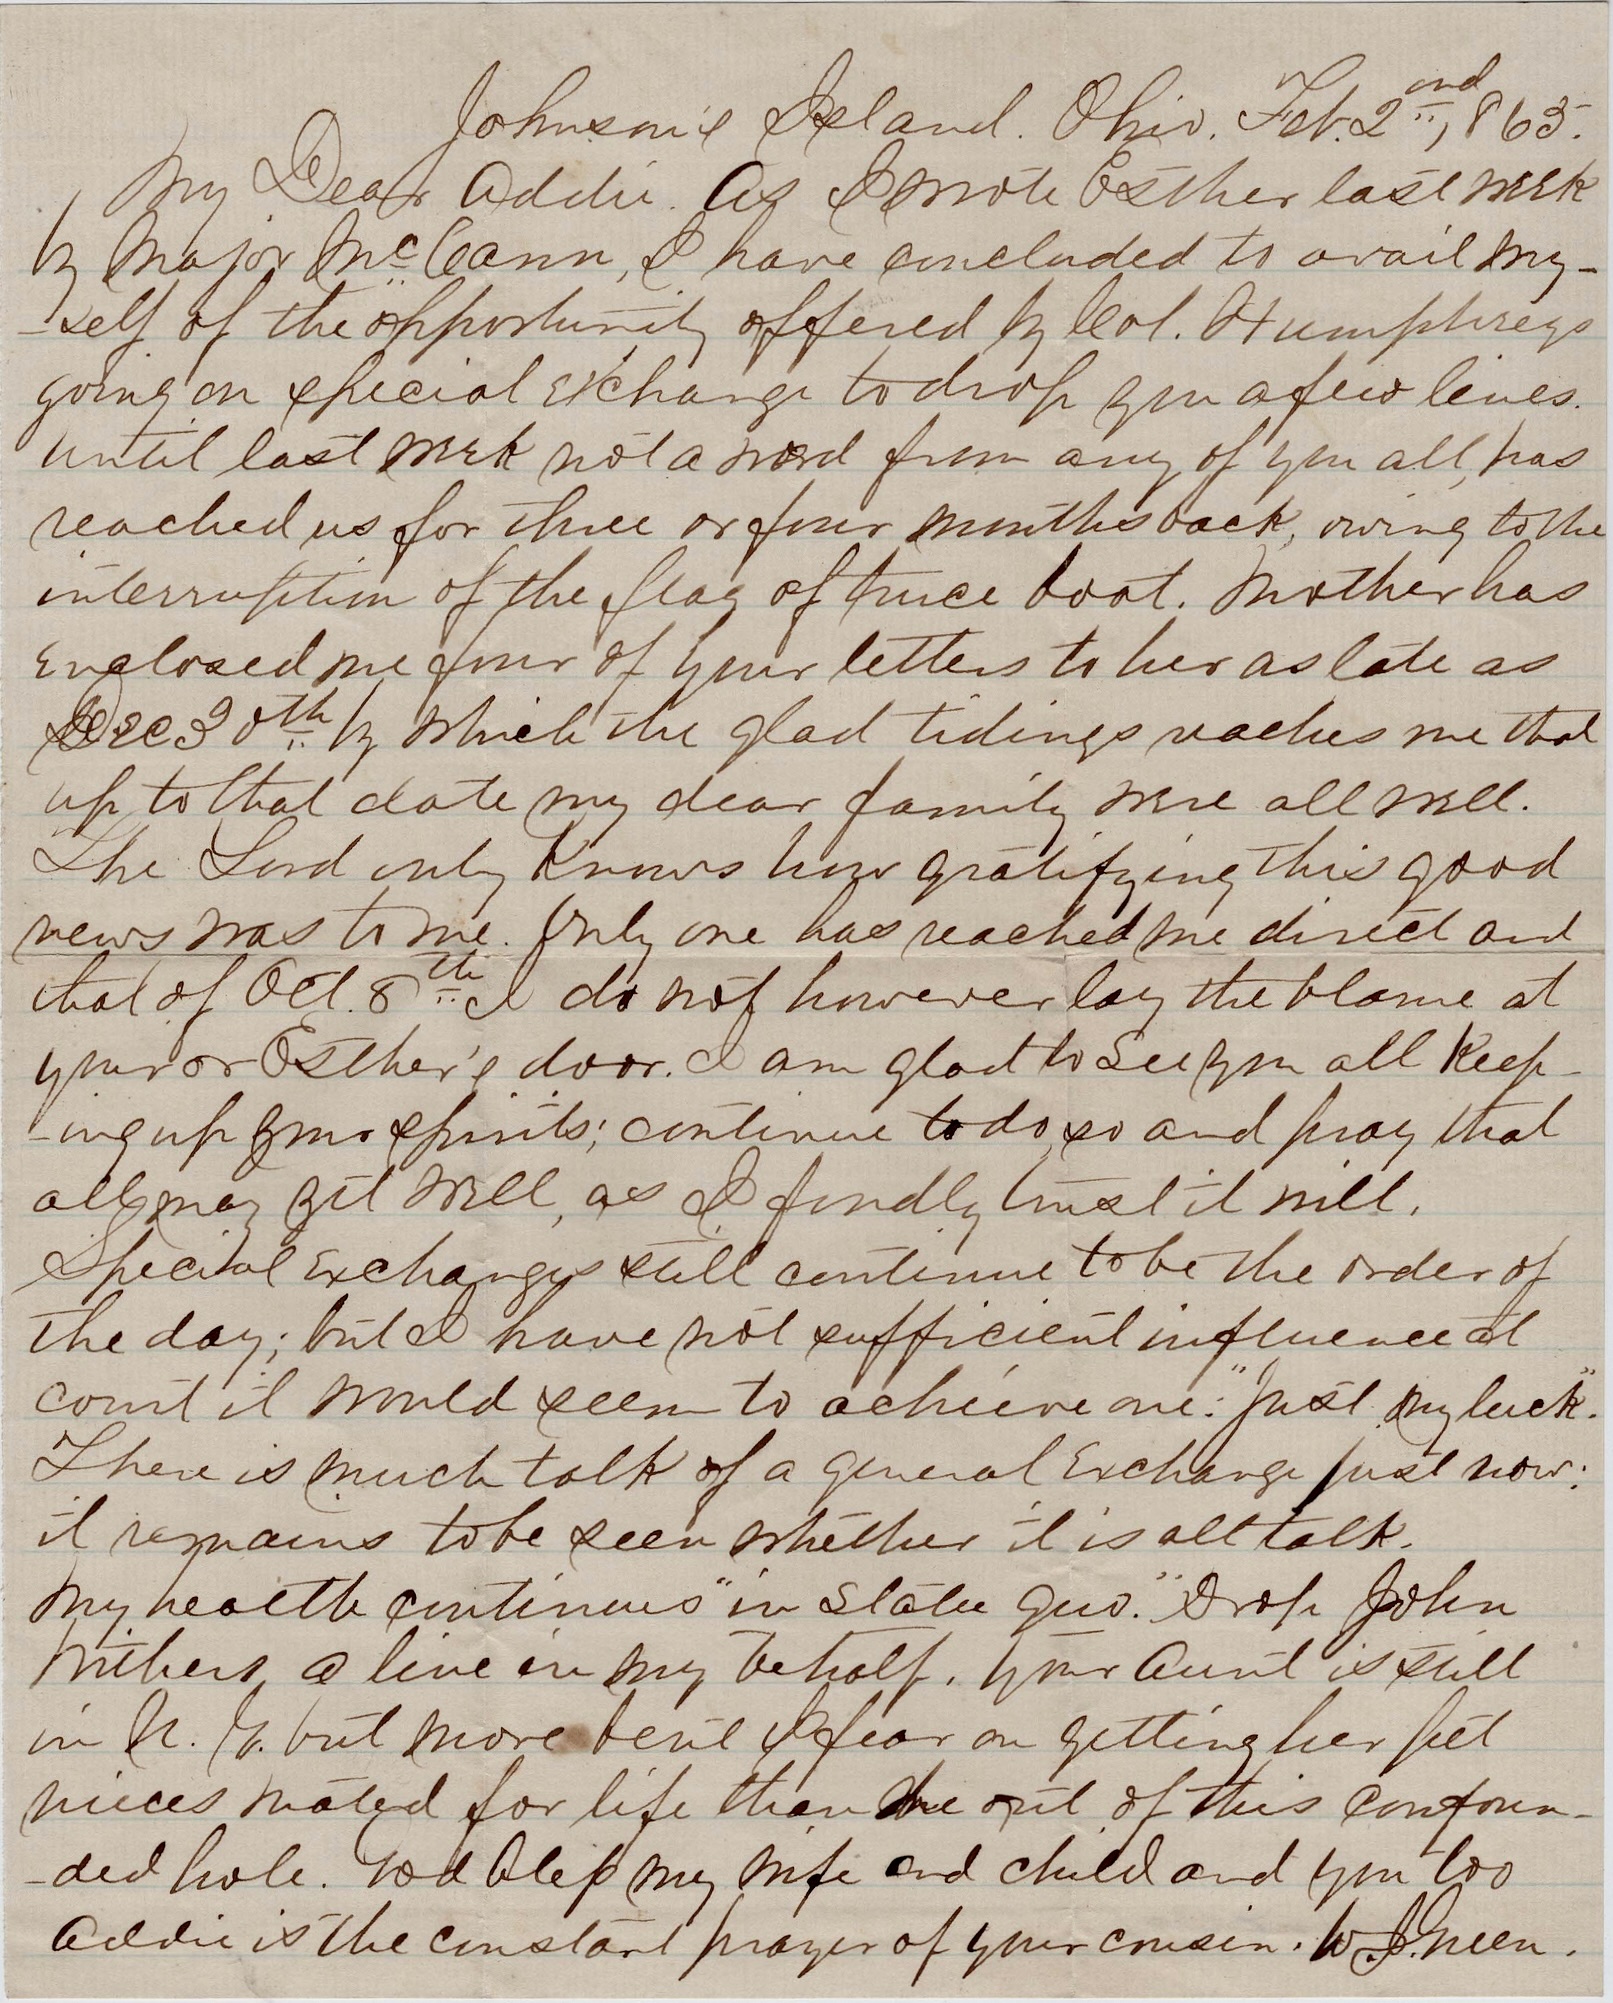 Johnson's Island. Ohio. Feb. 2nd, 1865.
My Dear Addie. As I wrote Esther last week
by Major McCann, I have concluded to avail my-
-self of the opportunity offered by Col. Humphreys
going on special exchange to drop you a few lines.
until last week not a word from any of you all, has
reached us for three or four months back, owing to the
interruption of the flag of truce boat. Mother has
enclosed me four of your letters to her as late as
Dec 30th by which the glad tidings reaches me that
up to that date my dear family were all well.
The Lord only knows how gratifying this good
news was to me. Only one has reached me direct and
that of Oct. 8th I do not however lay the blame at
your or Esther's door. I am glad to see you all keep-
-ing up your spirits; continue to do so and pray that
all may yet well, as I fondly trust it will.
Special exchanges still continue to be the order of
the day; but I have not sufficient influence at
court it would seem to achieve one: "Just my luck".
There is much talk of a general exchange just now:
it remains to be seen whether it is all talk.
My health continues "in statu quo." Drop John
Withers a line in my behalf. Your Aunt is still
in N. Y. but more bent I fear on getting her pet
nieces mated for life than me out of this confoun-
-ded hole. God bless my wife and child and you too
Addie is the constant prayer of your cousin. W J. Green.